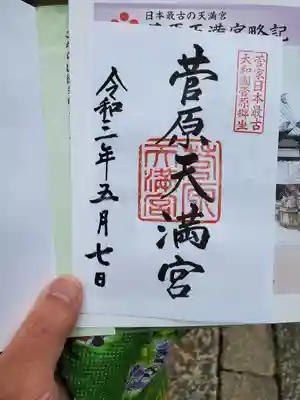 日本最古の天満宮
菅原天満宮略記
菅家日本最古
大和國菅原郷生
菅原天満宮
菅原
天満宮
令和二年五月七日